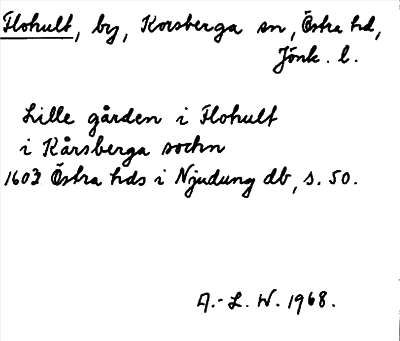 Flohult, by, Korsberga sn, Östra hd,
Jönk. l.
Lille gården i Flohult
i Kårsberga sochn
1603 Östra hds i Njudung db, s. 50.
A.-L. W. 1968.